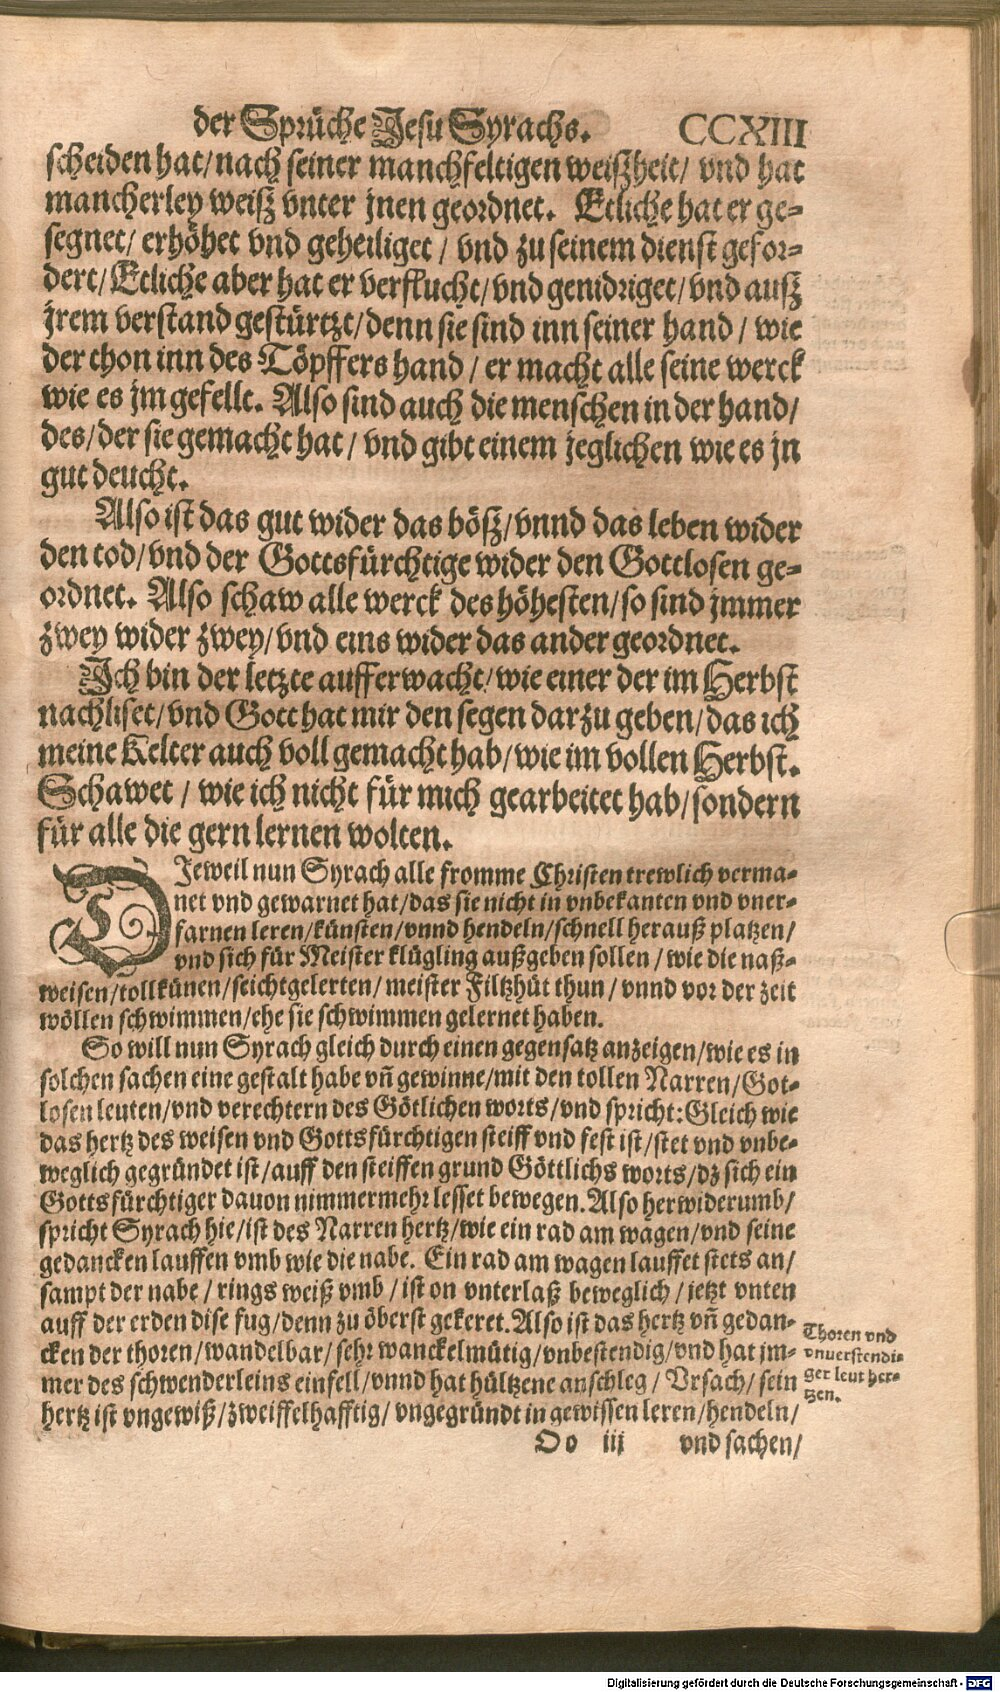 der Sprüche Jesu Syrachs. CCXIII
scheiden hat/ nach seiner manchfeltigen weißheit/ vnd hat
mancherley weiß vnter jnen geordnet. Etliche hat er ge-
segnet/ erhöhet vnd geheiliget / vnd zu seinem dienst gefor-
dert/ Etliche aber hat er verflucht/ vnd genidriget/ vnd auß
jrem verstand gestürtzt/ denn sie sind inn seiner hand / wie
der thon inn des Töpffers hand / er macht alle seine werck
wie es jm gefellt. Also sind auch die menschen in der hand/
des/ der sie gemacht hat/ vnd gibt einem jeglichen wie es jn
gut deucht.
Also ist das gut wider das böß/ vnnd das leben wider
den tod/ vnd der Gottsfürchtige wider den Gottlosen ge-
ordnet. Also schaw alle werck des höhesten/ so sind jmmer
zwey wider zwey/ vnd eins wider das ander geordnet.
Ich bin der letzte aufferwacht/ wie einer der im Herbst
nachliset/ vnd Gott hat mir den segen darzu geben/ das ich
meine Kelter auch voll gemacht hab/ wie im vollen Herbst.
Schawet / wie ich nicht für mich gearbeitet hab/ sondern
für alle die gern lernen wolten.
DJeweil nun Syrach alle fromme Christen trewlich verma-
net vnd gewarnet hat/ das sie nicht in vnbekanten vnd vner-
farnen leren/ künsten/ vnnd hendeln/ schnell herauß platzen/
vnd sich für Meister klügling außgeben sollen / wie die naß-
weisen/ tollkünen/ seichtgelerten/ meister Filtzhüt thun / vnnd vor der zeit
wöllen schwimmen/ ehe sie schwimmen gelernet haben.
So will nun Syrach gleich durch einen gegensatz anzeigen/ wie es in
solchen sachen eine gestalt habe vñ gewinne/ mit den tollen Narren/ Got-
losen leuten/ vnd verechtern des Götlichen worts/ vnd spricht: Gleich wie
das hertz des weisen vnd Gottsfürchtigen steiff vnd fest ist/ stet vnd vnbe-
weglich gegründet ist/ auff den steiffen grund Göttlichs worts/ dz sich ein
Gottsfürchtiger dauon nimmermehr lesset bewegen. Also herwiderumb/
spricht Syrach hie/ ist des Narren hertz/ wie ein rad am wagen/ vnd seine
gedancken lauffen vmb wie die nabe. Ein rad am wagen lauffet stets an/
sampt der nabe / rings weiß vmb / ist on vnterlaß beweglich / jetzt vnten
auff der erden dise fug/ denn zu öberst gekeret. Also ist das hertz vñ gedan-
cken der thoren/ wandelbar/ sehr wanckelmütig/ vnbestendig/ vnd hat jm-
mer des schwenderleins einfell/ vnnd hat hültzene anschleg / Vrsach/ sein
hertz ist vngewiß/ zweiffelhafftig/ vngegründt in gewissen leren/ hendeln/
Thoren vnd
vnuerstendi-
ger leut her-
tzen.
Oo iii vnd sachen/
Digitalisierung gefördert durch die Deutsche Forschungsgemeinschaft - DFG